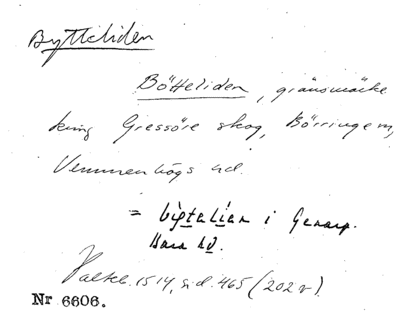 Bytteliden
Bötteliden, gränsmärke
kring Gressöre skog, Börringe sn,
Vemmenhögs hd.
= i Genarp.
Bara hd.
Palteb. 1514, sid. 465 (202 v)
Nr 6606.